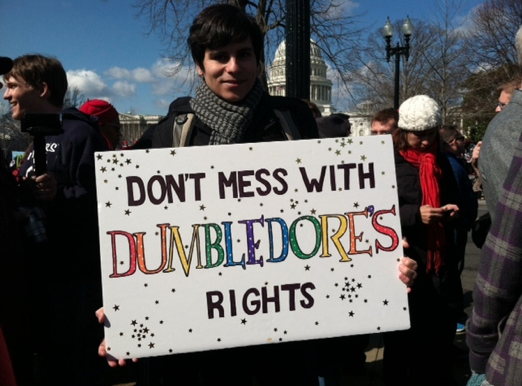 DON'T MESS WITH
DUMBLEDORE'S
RIGHTS